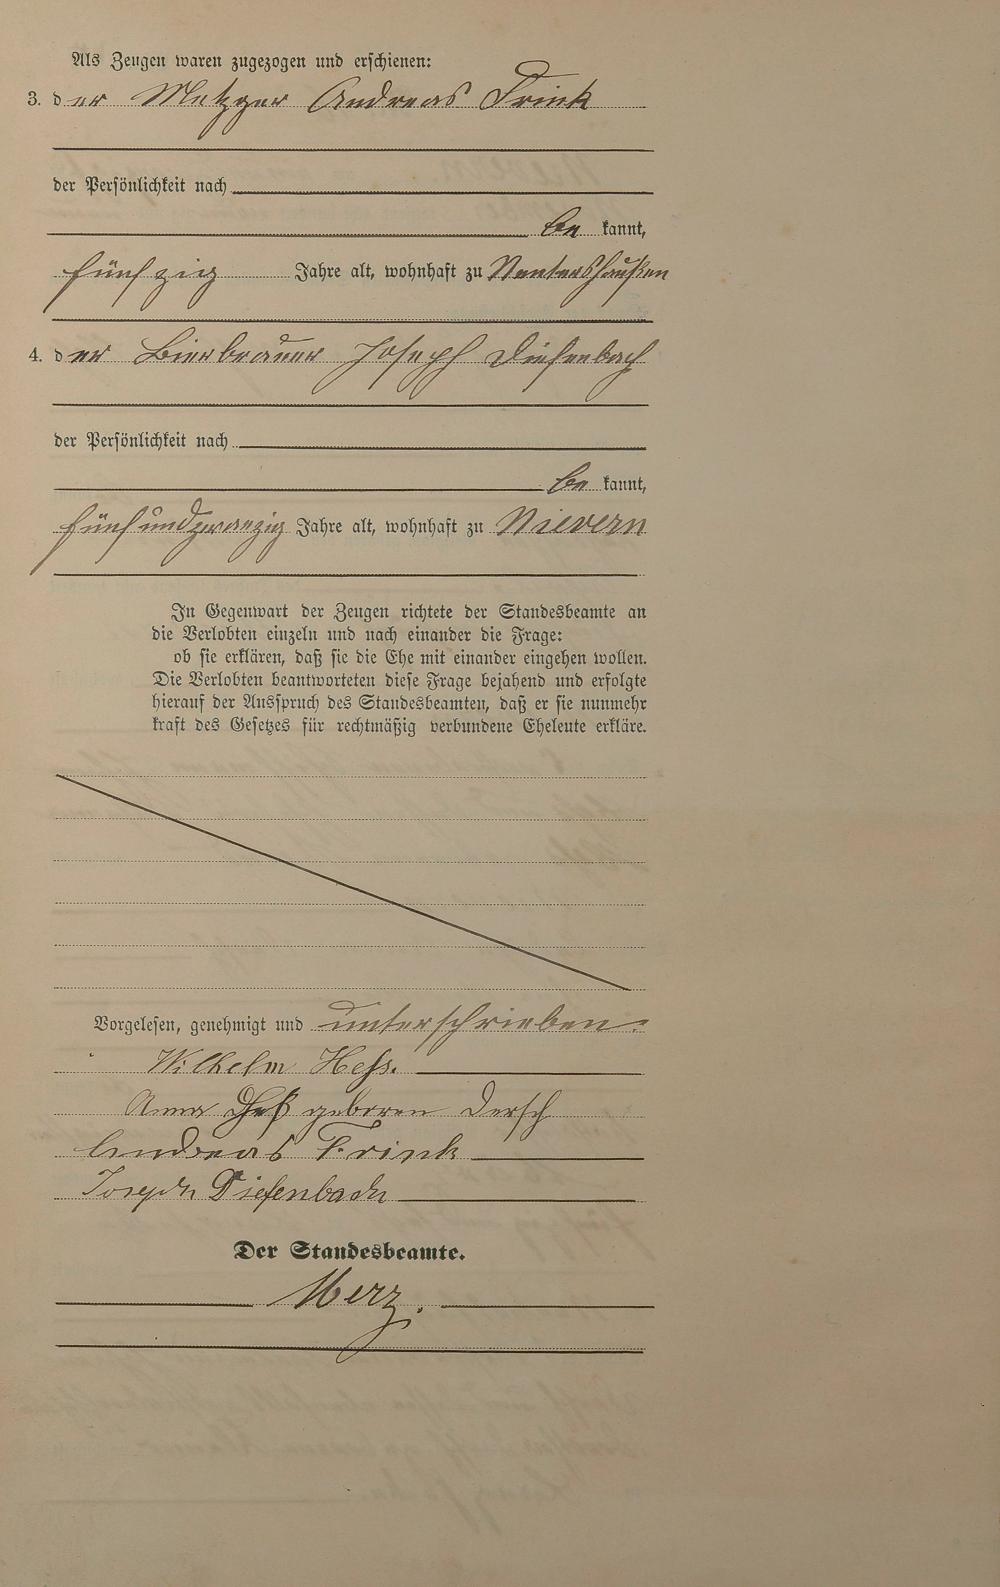 Als Zeugen waren zugezogen und erschienen:
3. der Metzger Andreas Frink
der Persönlichkeit nach
be kannt,
fünfzig Jahre alt, wohnhaft zu Nentershausen
4. der Bierbrauer Joseph Diefenbach
der Persönlichkeit nach
be kannt,
fünfundzwanzig Jahre alt, wohnhaft zu Nievern
In Gegenwart der Zeugen richtete der Standesbeamte an
die Verlobten einzeln und nach einander die Frage:
ob sie erklären, daß sie die Ehe mit einander eingehen wollen.
Die Verlobten beantworteten diese Frage bejahend und erfolgte
hierauf der Ausspruch des Standesbeamten, daß er sie nunmehr
kraft des Gesetzes für rechtmäßig verbundene Eheleute erkläre.
Vorgelesen, genehmigt und unterschrieben.
Wilhelm Hess.
Anna Heß geboren Dersch
Andreas Frink
Joseph Diefenbach
Der Standesbeamte.
Merz.